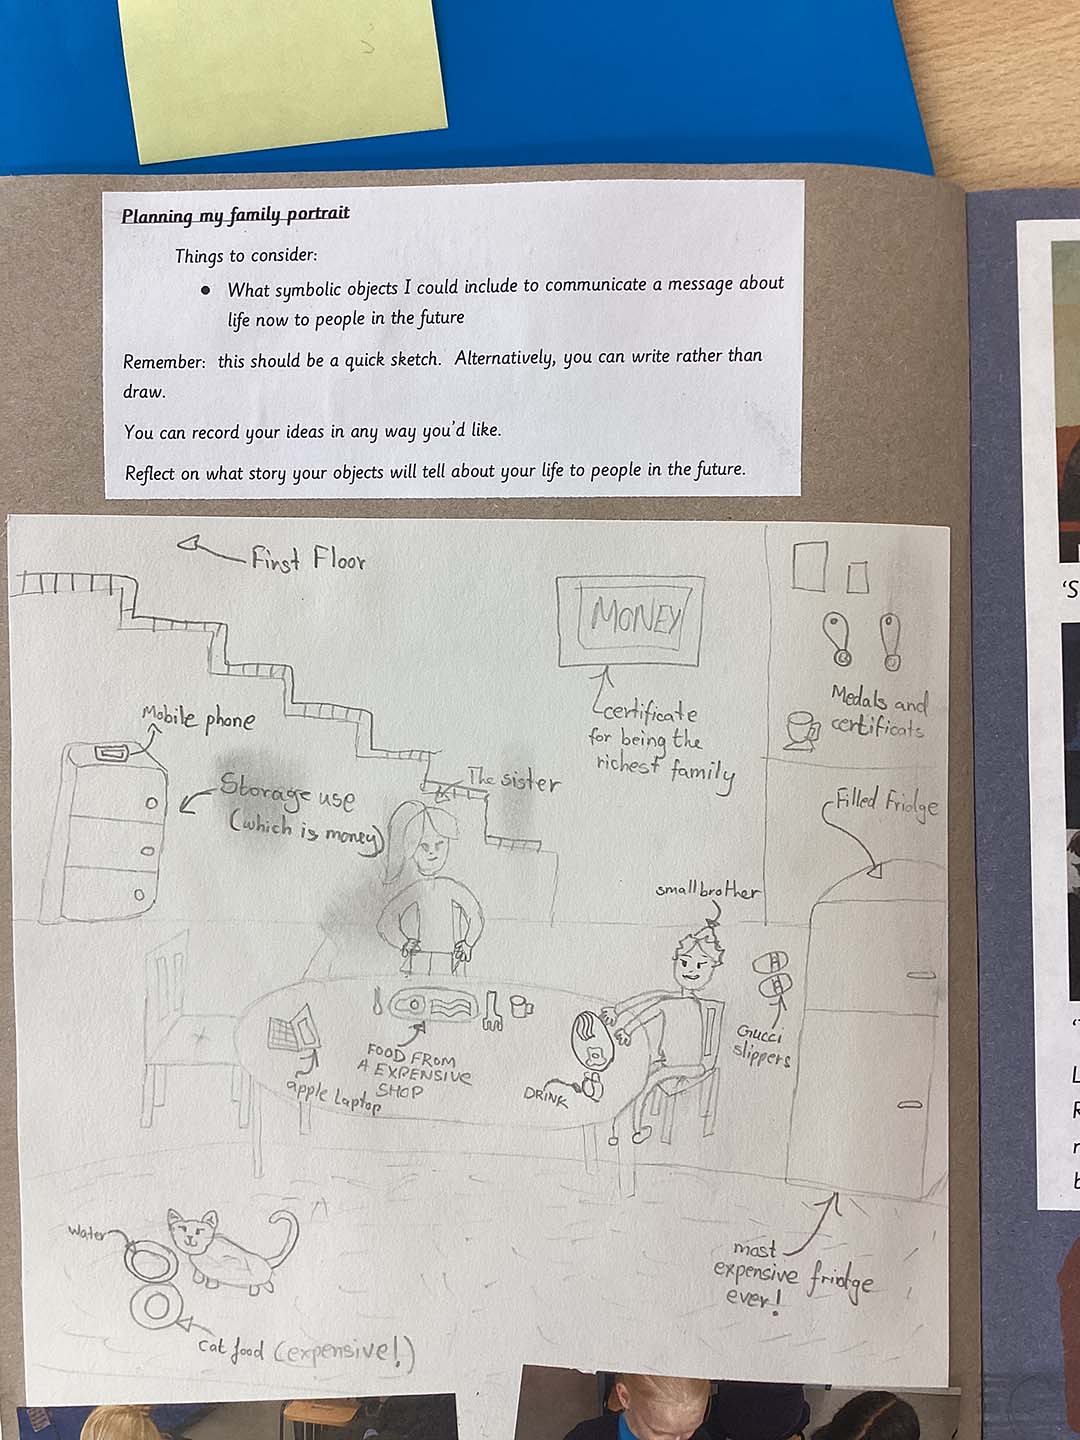 Planning my family portrait
Things to consider:
● What symbolic objects I could include to communicate a message about
life now to people in the future
Remember: this should be a quick sketch. Alternatively, you can write rather than
draw.
You can record your ideas in any way you'd like.
Reflect on what story your objects will tell about your life to people in the future.
First Floor
MONEY
certificate
for being the
richest family
Medals and
certificats
Mobile phone
Storage use
(which is money)
The sister
Filled Fridge
small brother
Gucci
slippers
FOOD FROM
A EXPENSIVE
SHOP
apple Laptop
DRINK
water
cat food (expensive!)
most
expensive fridge
ever!
'S
L
R